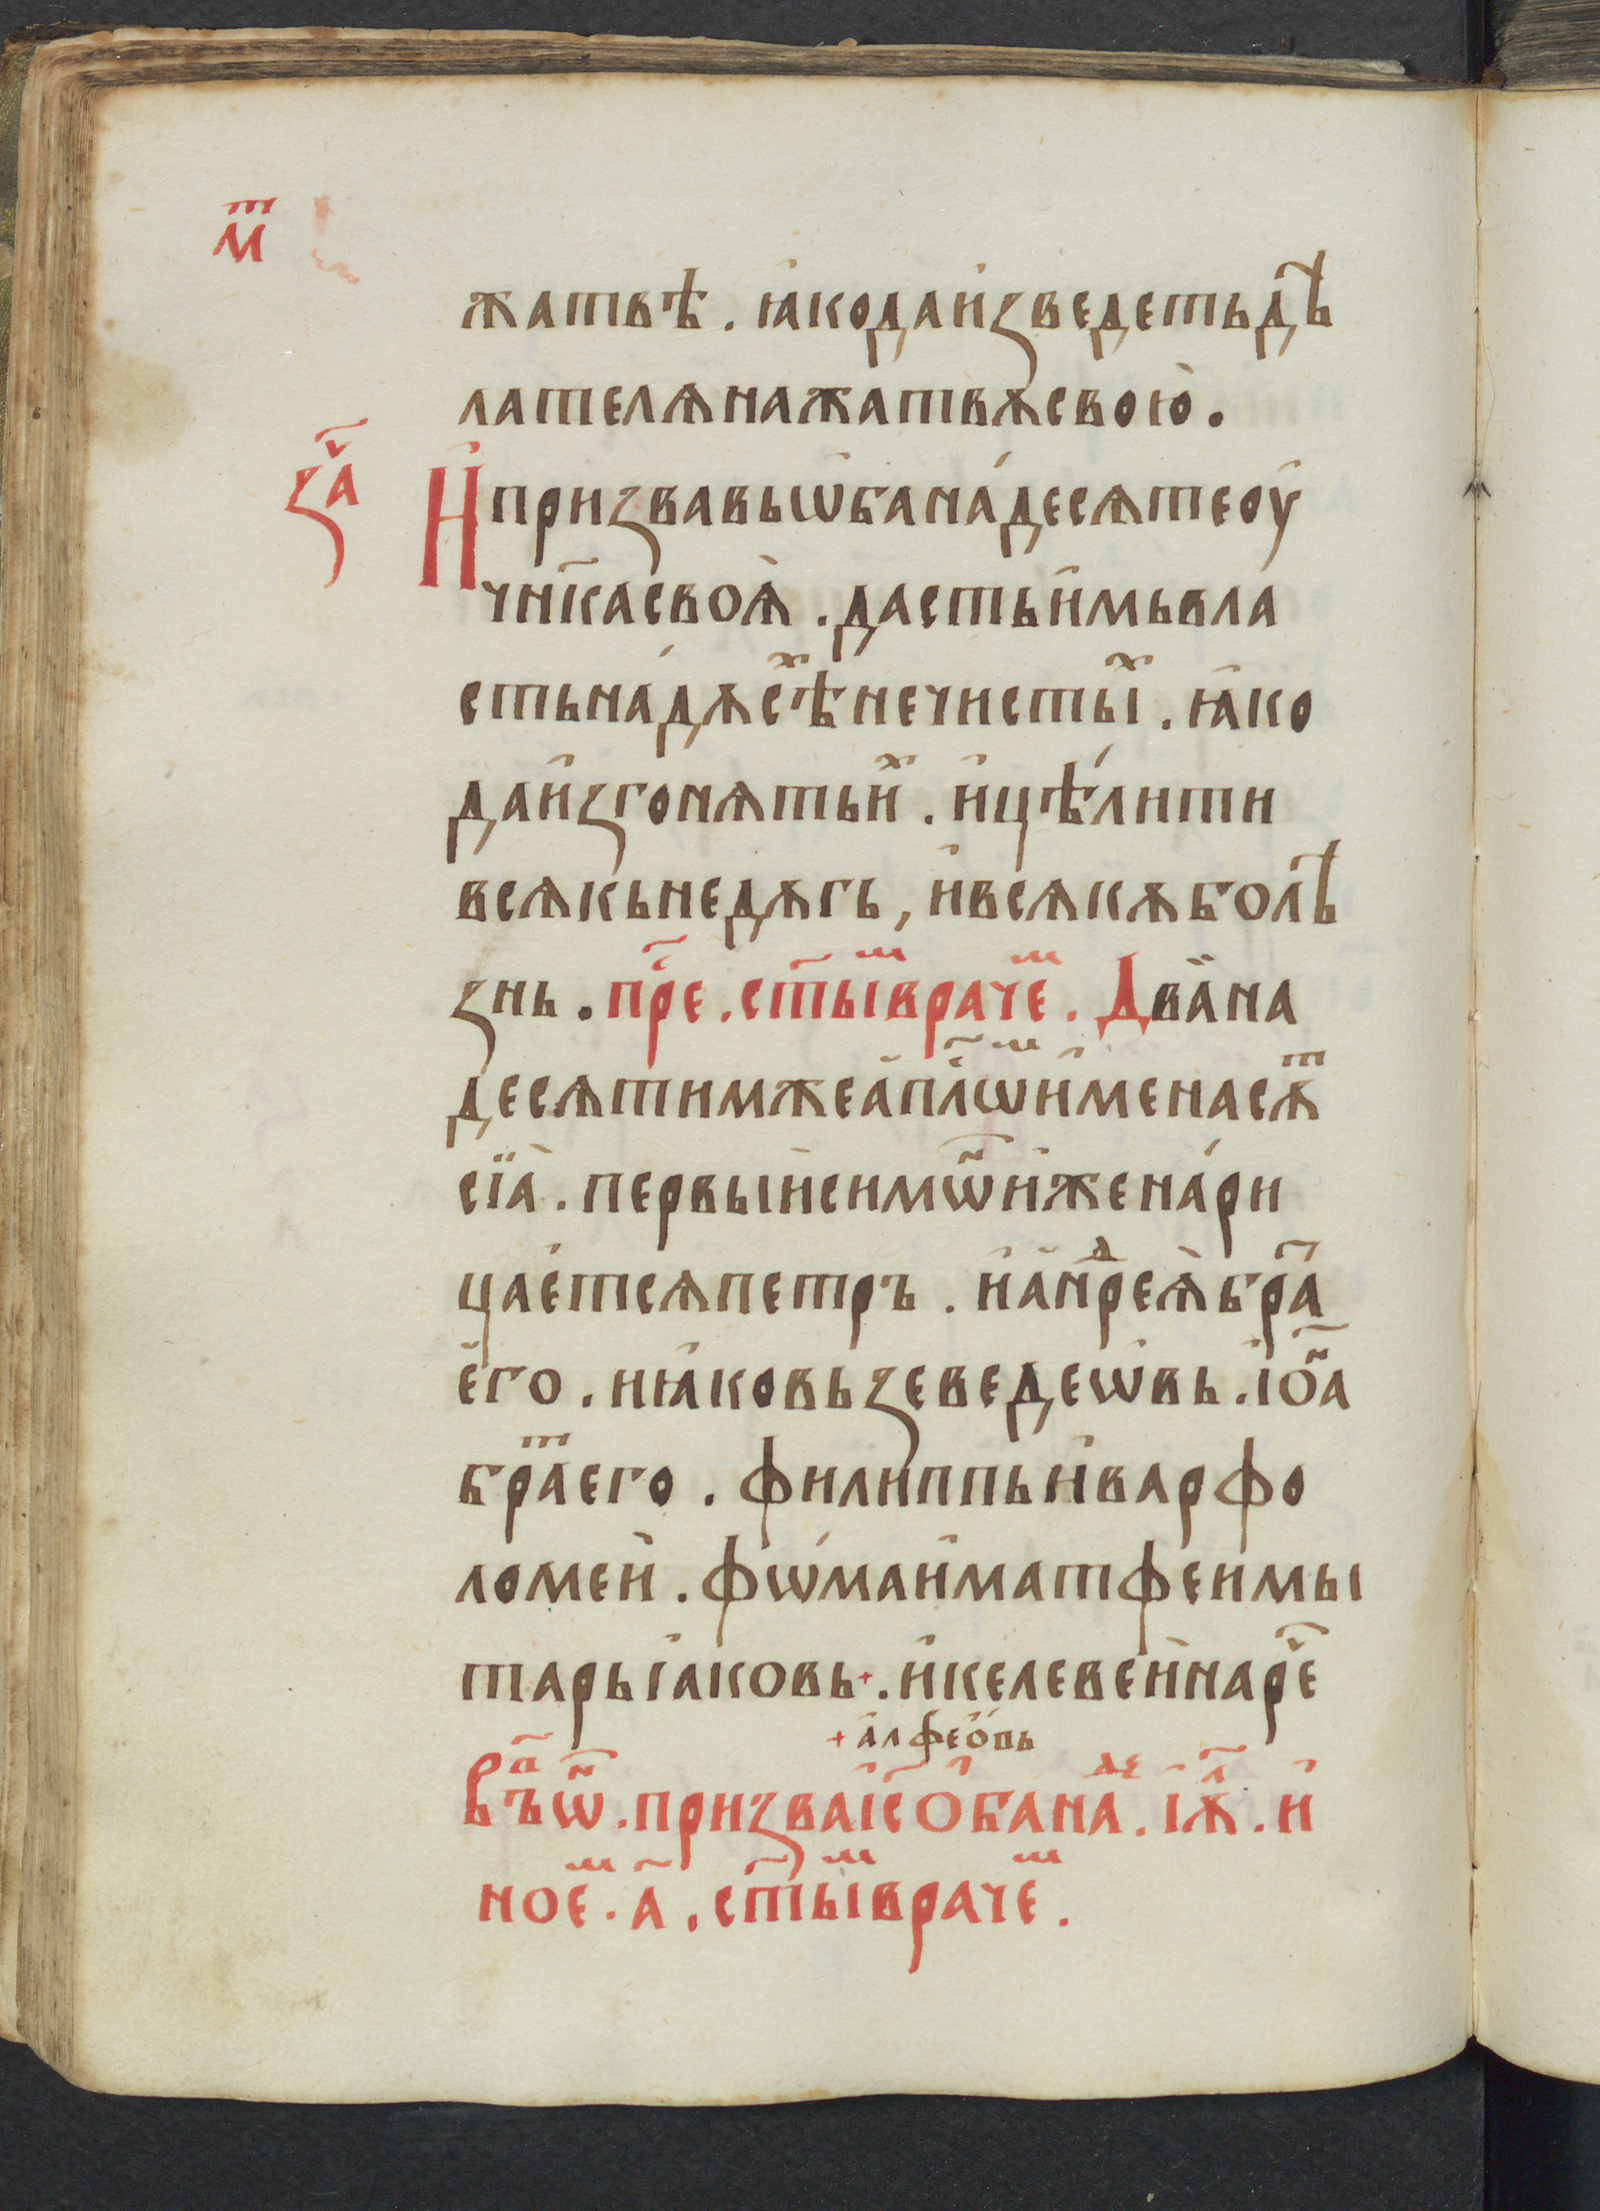 мⷮ
жатвѣ. ꙗ҆кода и҆зведетьдѣ
лателѧнажатвѫсвою̀.
за҃ч
И҆призвавьѡ҆бана́десѧтеоу҆
чн҃касвоѧ̀. дастьи҆мьвла
стьна́дѫс҃ѣⷯнечистыⷯ. ꙗ҆ко
даи҆згонѧтьиⷯ. и҆цѣ́лити
всѧкьнедѫгь, и҆всѧкѫболѣ
знь. преⷭ҇. ст҃ыⷨвраче ⷨ. Двӓна
десѧтимжеа҆пл҃ѡⷨи҆менасѫⷮ
сїа̀. первыи҆симѡⷩ҇и҆жена́ри
цае҆тсѧпетръ. и҆а҆нⷣреѧ̀бра҃
е҆го. иꙗ҆ковьзеведеѡ҆вь. і҆оаⷩ҇
браⷮего. филиппьи҆варфо
ломеи҆. фѡ́маи҆матфеимы
тарьі҆аковь+. и҆келевеи҆нареⷱ҇
+ а҆лфео́вь
вⷬъⷪ҇ѡⷩ҇. призваі҆с҃о҆банаⷣⷷ. і҆ѧⷧ҇. и҆
ноеⷨ. а҃. ст҃ыⷨврачеⷨ.